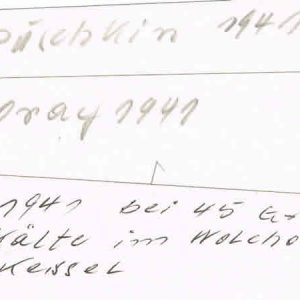 püschkin 1941
1941
1941 bei 45 Gr
Kälte im Wolcho
Kessel